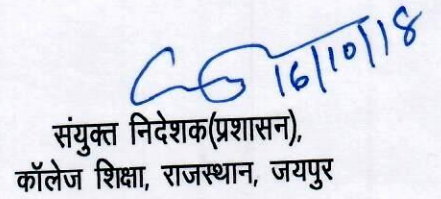 16/10/18
संयुक्त निदेशक(प्रशासन),
कॉलेज शिक्षा, राजस्थान, जयपुर